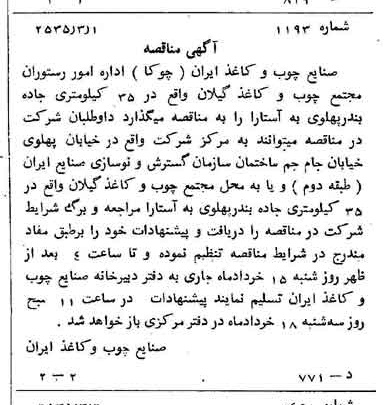 شماره ۱۱۹۳ ۲۵۳۵/۳/۱
آگهی مناقصه
صنایع چوب و کاغذ ایران ( چوکا ) اداره امور رستوران
مجتمع چوب و کاغذ گیلان واقع در ۳۵ کیلومتری جاده
بندرپهلوی به آستارا را به مناقصه میگذارد داوطلبان شرکت
در مناقصه میتوانند به مرکز شرکت واقع در خیابان پهلوی
خیابان جام جم ساختمان سازمان گسترش و نوسازی صنایع ایران
( طبقه دوم ) و یا به محل مجتمع چوب و کاغذ گیلان واقع در
۳۵ کیلومتری جاده بندرپهلوی به آستارا مراجعه و برگ شرایط
شرکت در مناقصه را دریافت و پیشنهادات خود را برطبق مفاد
مندرج در شرایط مناقصه تنظیم نموده و تا ساعت ٤ بعد از
ظهر روز شنبه ۱۵ خردادماه جاری به دفتر دبیرخانه صنایع چوب
و کاغذ ایران تسلیم نمایند پیشنهادات در ساعت ۱۱ صبح
روز سه‌شنبه ۱۸ خردادماه در دفتر مرکزی باز خواهد شد .
صنایع چوب وکاغذ ایران
د — ۷۷۱ ۲ — ۲